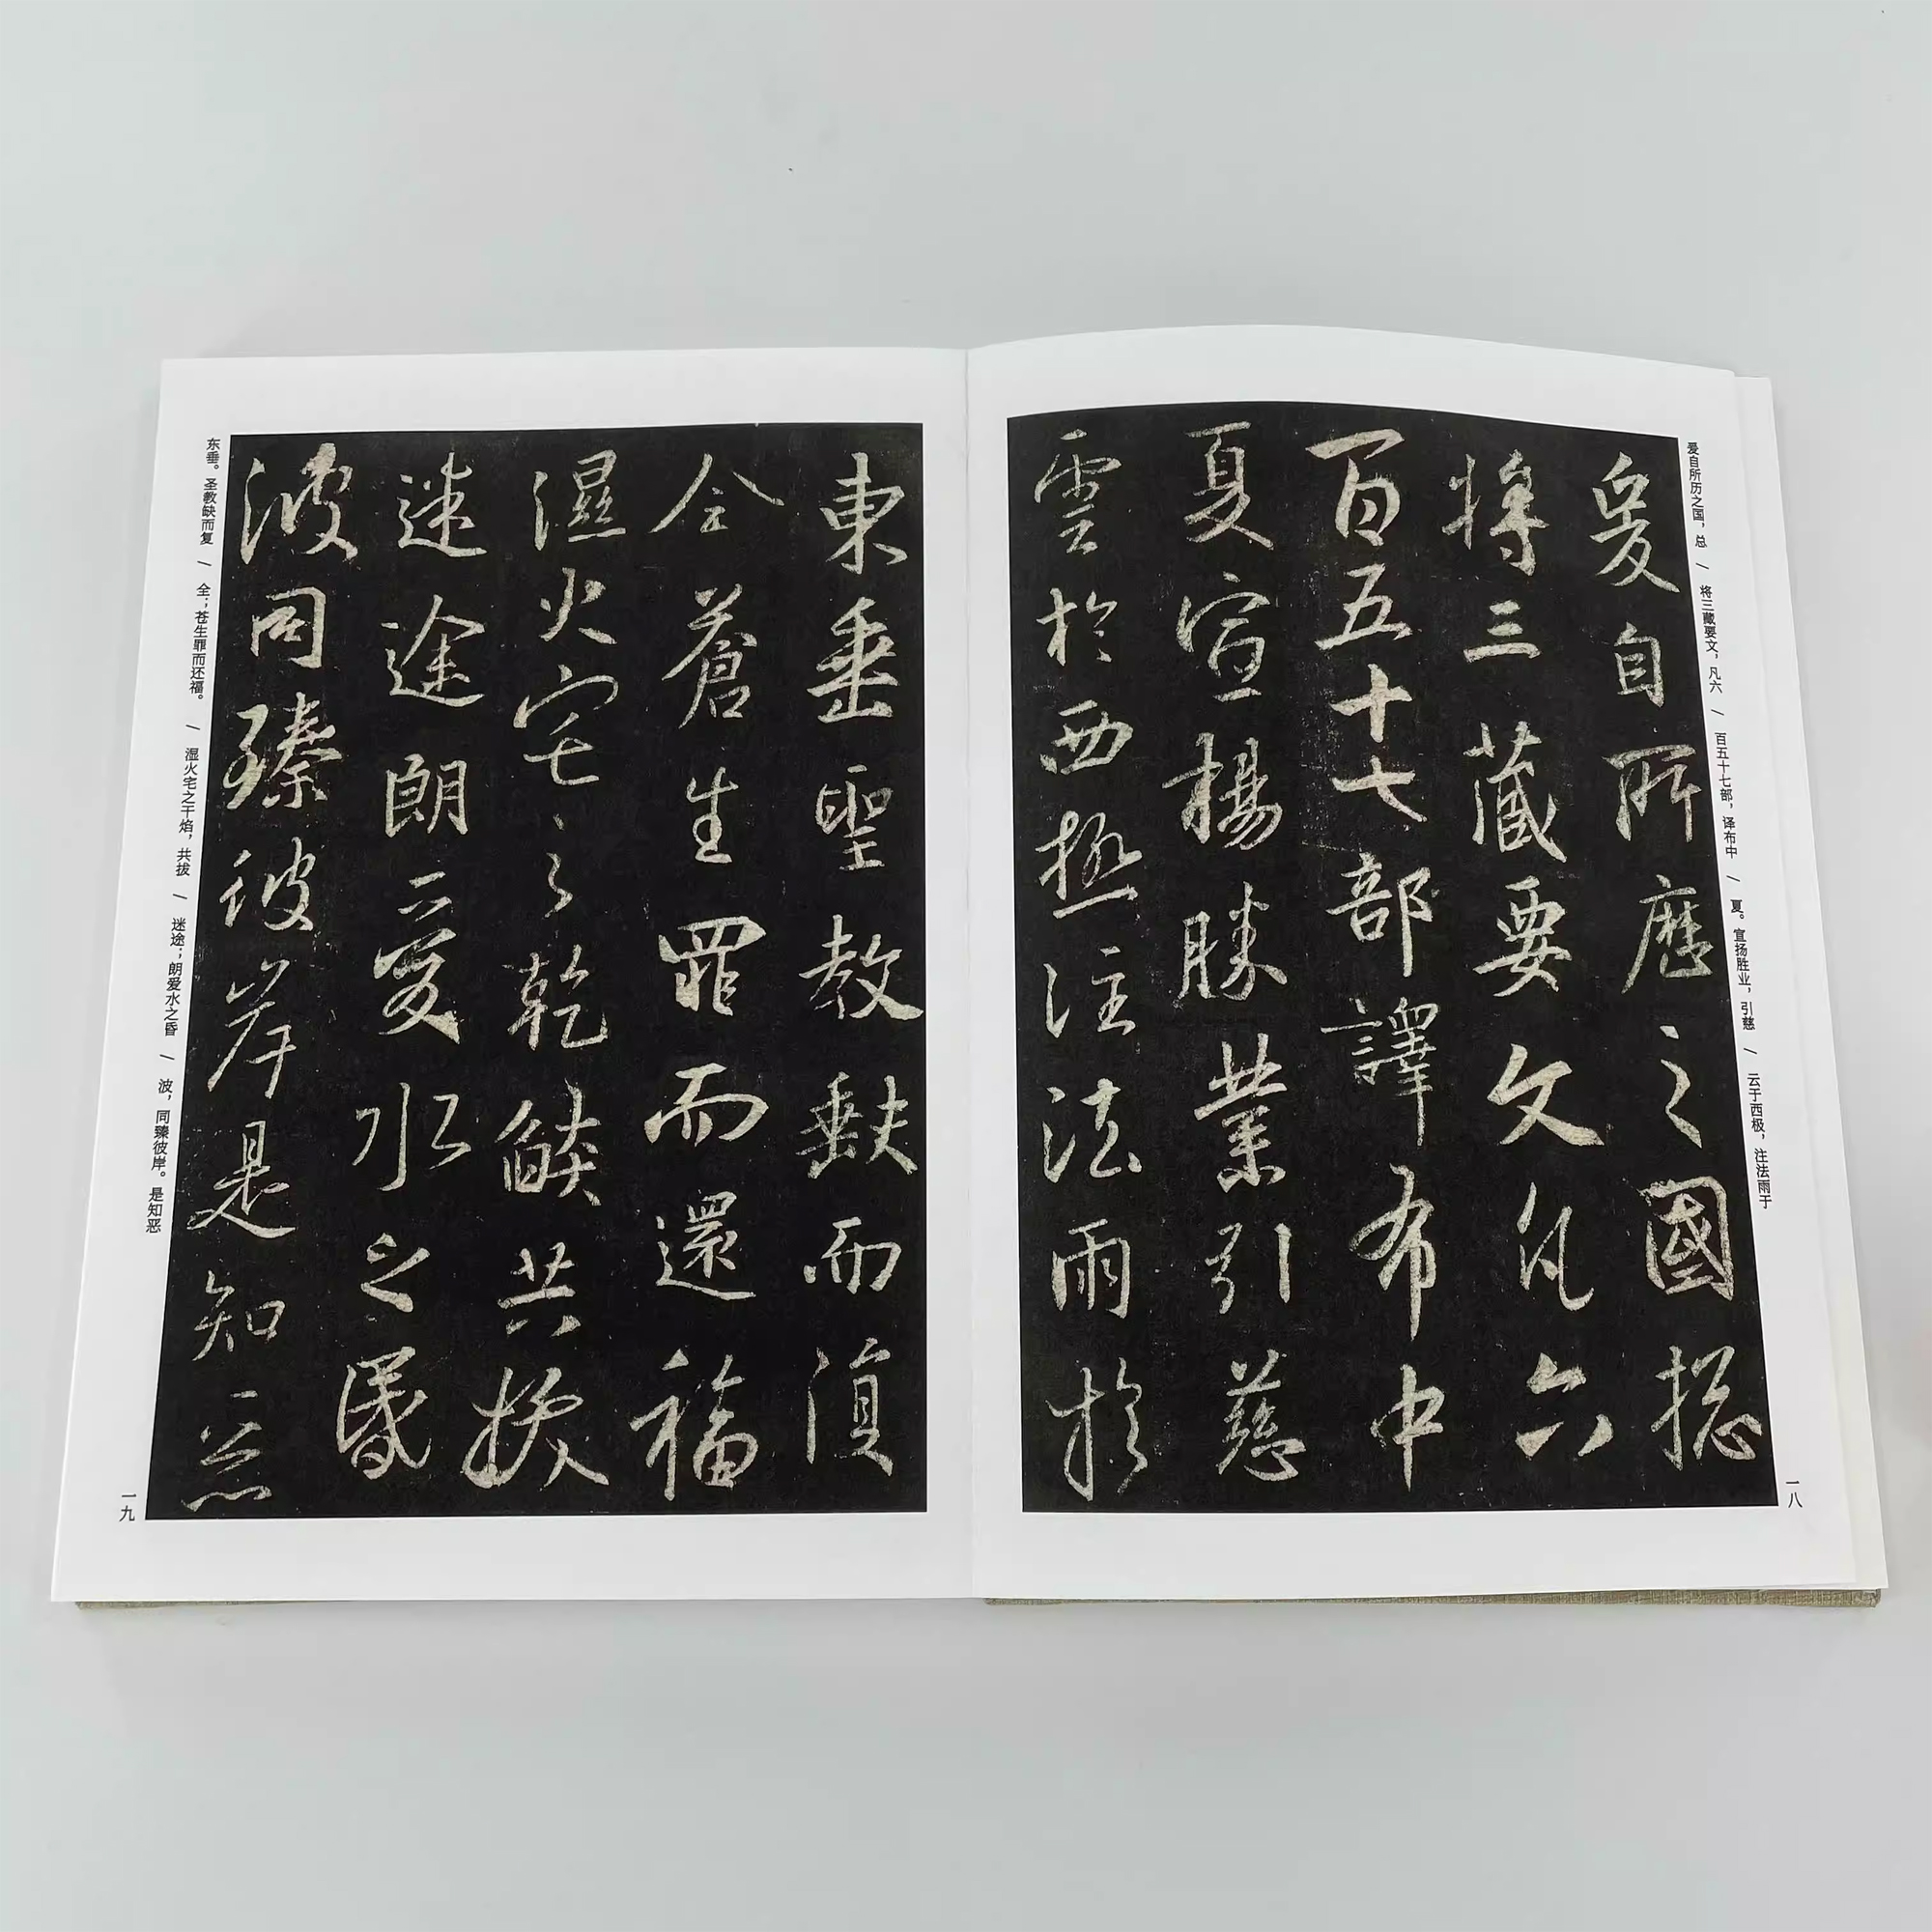 爰自所历之国，总 / 将三藏要文，凡六 / 百五十七部，译布中 / 夏。宣扬胜业，引慈 / 云于西极，注法雨于
爰自所歷之國揔
將三藏要文凡六
百五十七部譯布中
夏宣揚勝業引慈
雲於西極注法雨於
一八
東垂聖教缺而復
全蒼生罪而還福
濕火宅之乾燄共拔
迷途朗愛水之昏
波同臻彼岸是知惡
东垂。圣教缺而复 / 全；苍生罪而还福。 / 湿火宅之干焰，共拔 / 迷途；朗爱水之昏 / 波，同臻彼岸。是知恶
一九